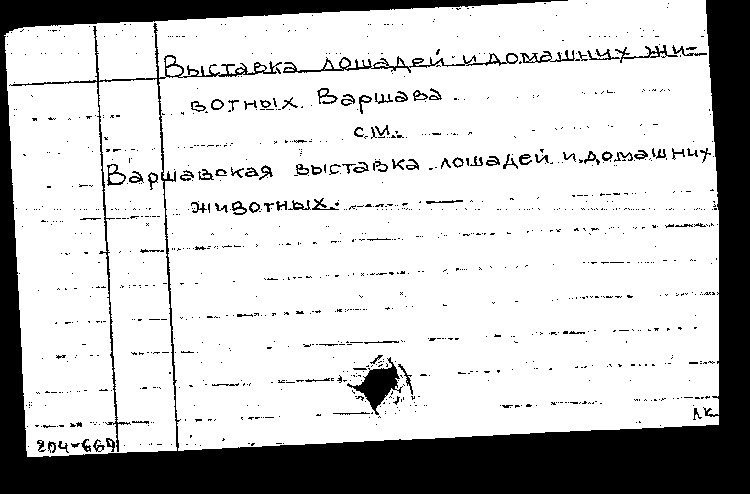 Выставка лошадей и домашних жи-
вотных. Варшава
см.
Варшавская выставка лошадей и домашних
животных.
204-660
лк